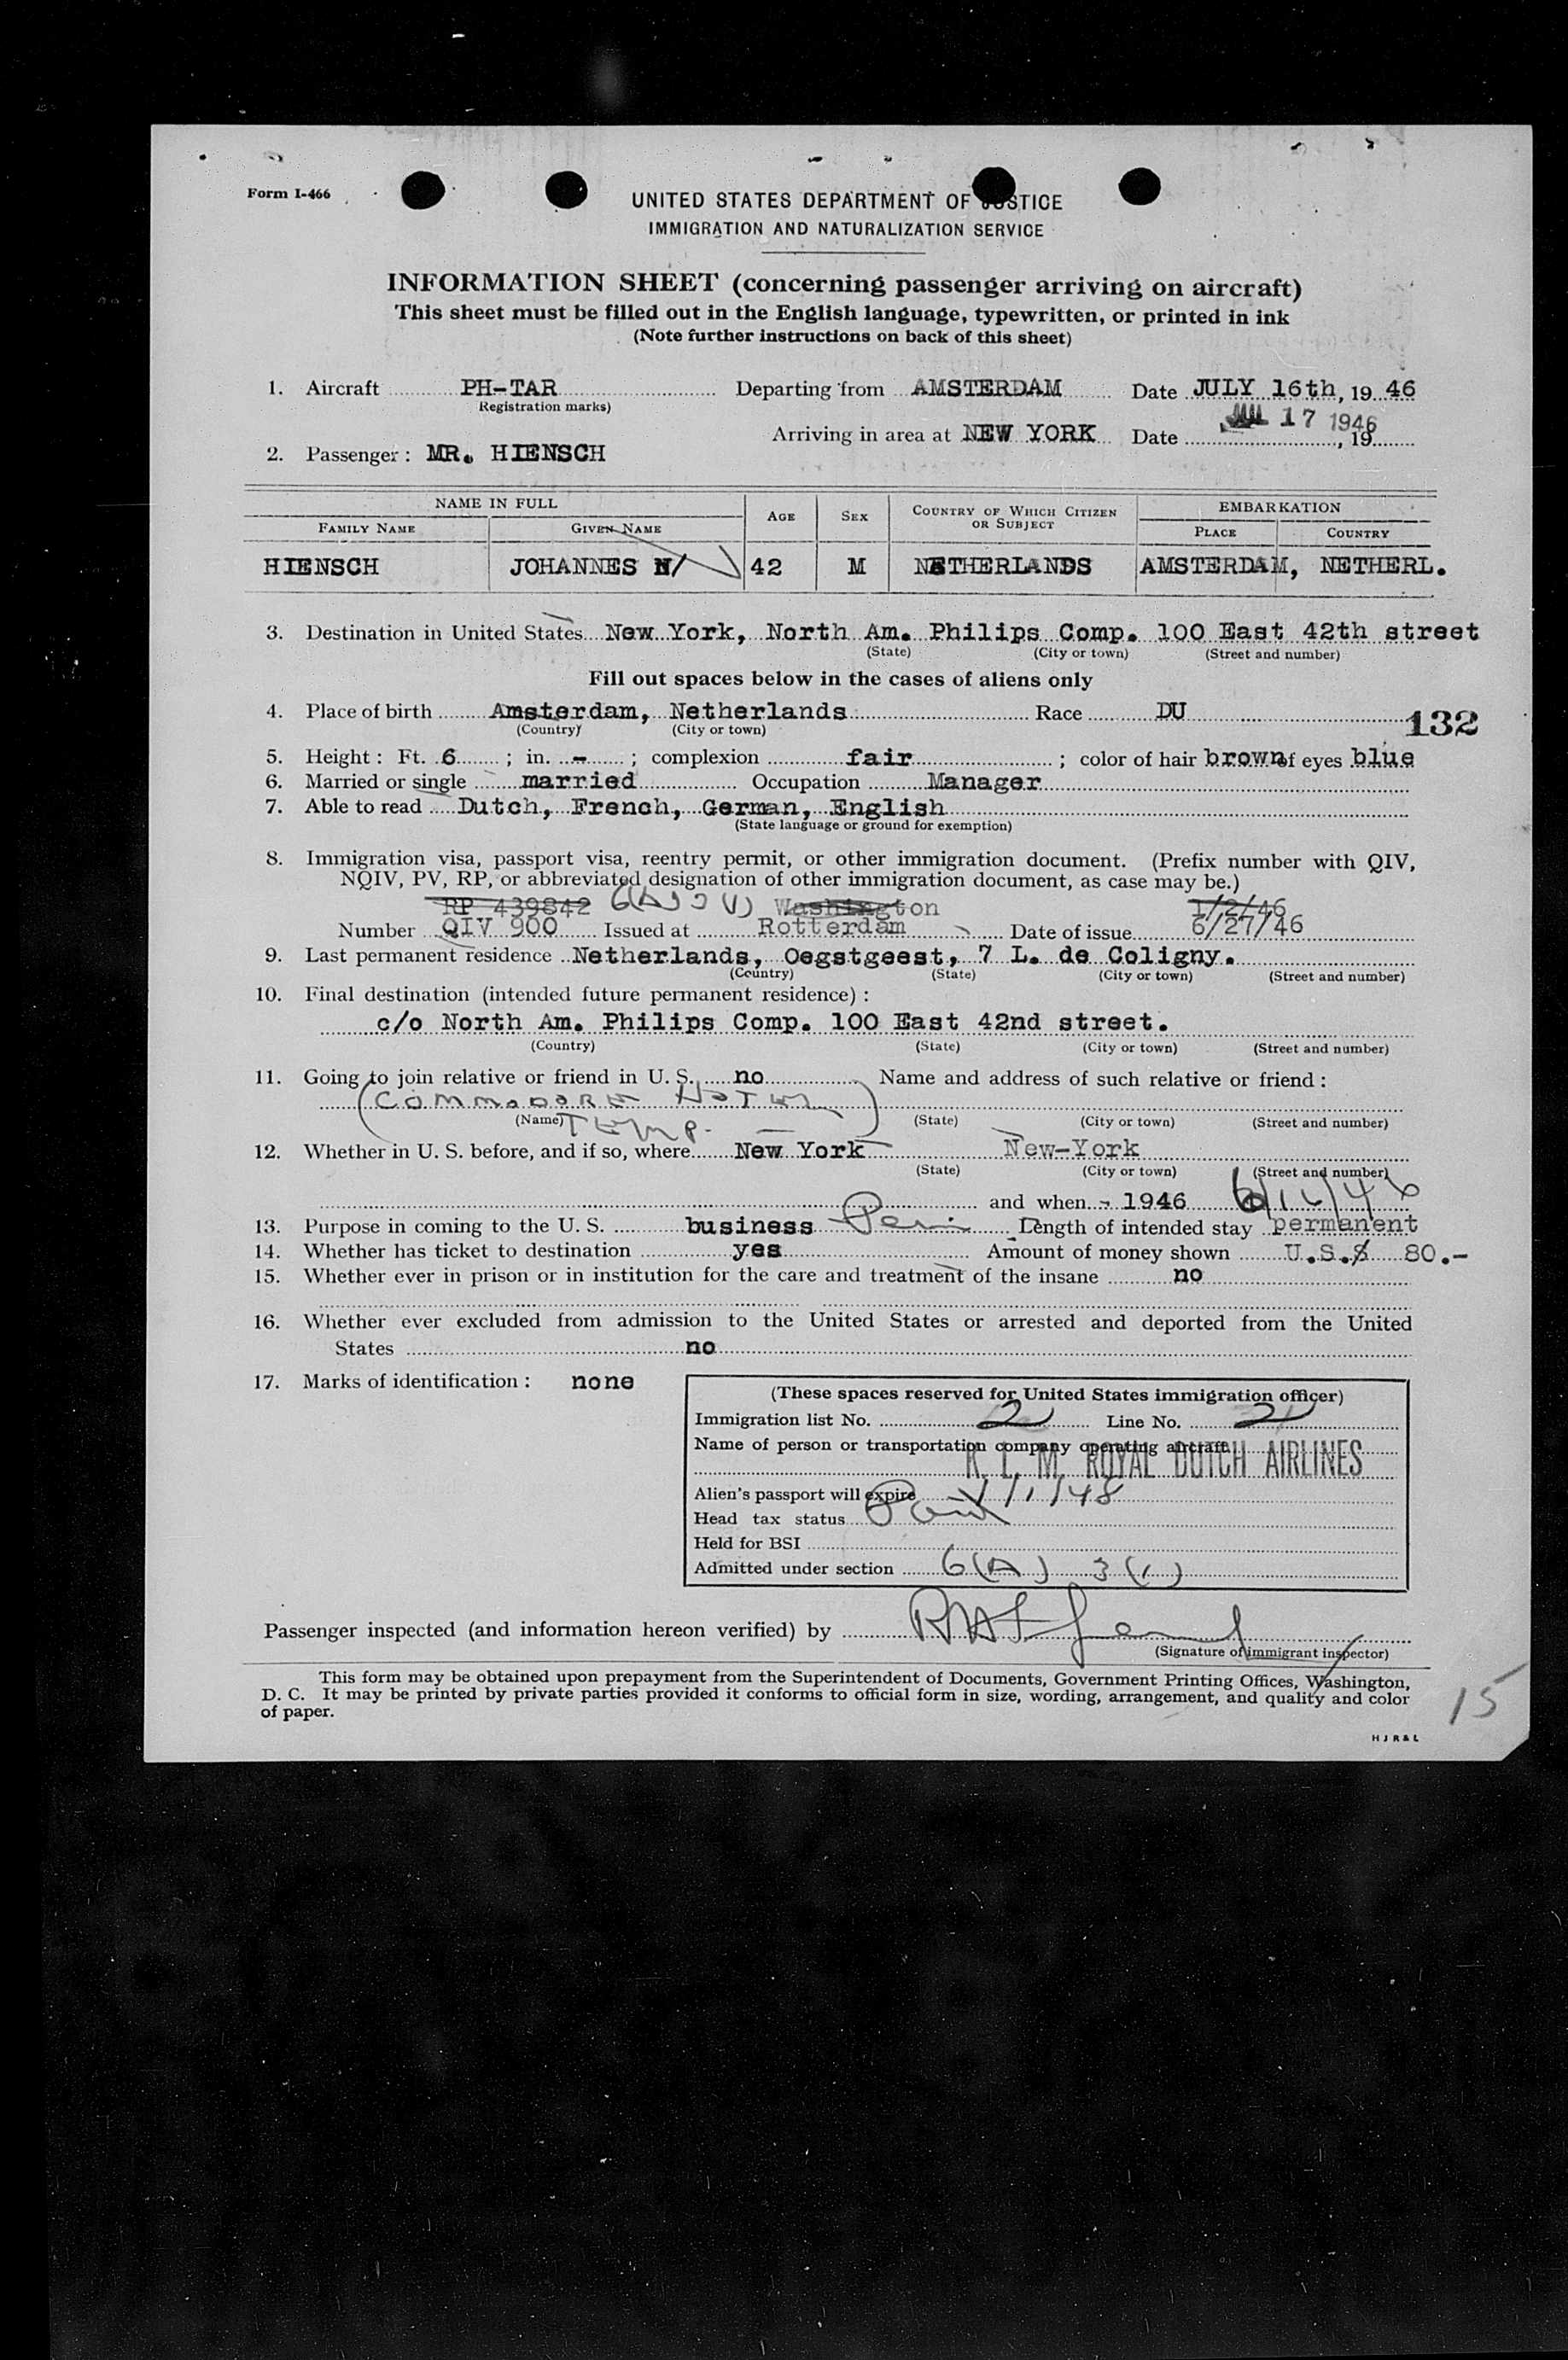 Form I-466
UNITED STATES DEPARTMENT OF JUSTICE
IMMIGRATION AND NATURALIZATION SERVICE
INFORMATION SHEET (concerning passenger arriving on aircraft)
This sheet must be filled out in the English language, typewritten, or printed in ink
(Note further instructions on back of this sheet)
1. Aircraft PH-TAR Departing from AMSTERDAM Date JULY 16th, 19 46
(Registration marks)
Arriving in area at NEW YORK Date JUL 17 1946, 19
2. Passenger: MR. HIENSCH
NAME IN FULL AGE SEX COUNTRY OF WHICH CITIZEN OR SUBJECT EMBARKATION
FAMILY NAME GIVEN NAME PLACE COUNTRY
HIENSCH JOHANNES N/ 42 M NETHERLANDS AMSTERDAM, NETHERL.
3. Destination in United States New York, North Am. Philips Comp. 100 East 42th street
(State) (City or town) (Street and number)
Fill out spaces below in the cases of aliens only
4. Place of birth Amsterdam, Netherlands Race DU
132
(Country) (City or town)
5. Height: Ft. 6 ; in. - ; complexion fair ; color of hair brown of eyes blue
6. Married or single married Occupation Manager
7. Able to read Dutch, French, German, English
(State language or ground for exemption)
8. Immigration visa, passport visa, reentry permit, or other immigration document. (Prefix number with QIV,
NQIV, PV, RP, or abbreviated designation of other immigration document, as case may be.)
RP 439842 6(A) 3 (1) Washington 1/2/46
Number QIV 900 Issued at Rotterdam Date of issue 6/27/46
9. Last permanent residence Netherlands, Oegstgeest, 7 L. de Coligny.
(Country) (State) (City or town) (Street and number)
10. Final destination (intended future permanent residence) :
c/o North Am. Philips Comp. 100 East 42nd street.
(Country) (State) (City or town) (Street and number)
11. Going to join relative or friend in U. S. no Name and address of such relative or friend :
(COMMODORE HOTEL)
(Name) TEMP. (State) (City or town) (Street and number)
12. Whether in U. S. before, and if so, where New York New-York
(State) (City or town) (Street and number)
and when - 1946
13. Purpose in coming to the U. S. business Perm Length of intended stay permanent
14. Whether has ticket to destination yes Amount of money shown U.S.$ 80.-
15. Whether ever in prison or in institution for the care and treatment of the insane no
16. Whether ever excluded from admission to the United States or arrested and deported from the United
States no
17. Marks of identification : none
(These spaces reserved for United States immigration officer)
Immigration list No. 2 Line No. 2
Name of person or transportation company operating aircraft
K. L. M. ROYAL DUTCH AIRLINES
Alien's passport will expire 1/1/48
Head tax status Paid
Held for BSI
Admitted under section 6(A) 3(1)
Passenger inspected (and information hereon verified) by
(Signature of immigrant inspector)
This form may be obtained upon prepayment from the Superintendent of Documents, Government Printing Offices, Washington,
D. C. It may be printed by private parties provided it conforms to official form in size, wording, arrangement, and quality and color
of paper.
15
H J R & L